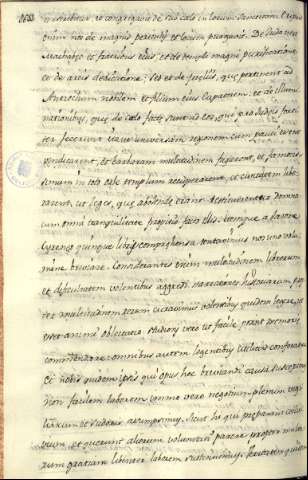 miserebitur, et congregabit de sub celo in locum sanctum. Eripuit
enim nos de magnis periculis et locum purgavit. De Juda vero
Machabeo, et fratribus eius, et de templi magni purificatione,
et de areæ dedicatione, sed et de preliis, que pertinent ad
Antiochum nobilem et filium eius Eupatorem, et de illumi
nationibus, que de celo facte sunt ad eos qui pro Judeis forti
ter fecerunt ita ut universam regionem cum pauci essent
vindicarent, et barbaram multitudinem fugarent, et famosis
simum in toto orbe templum recuperarent, et civitatem libe
rarent, et leges, que abolite erant restituerentur domino
cum omni tranquilitate propitio facto illis. itemque a Jasone
Cyreneo quinque libris comprehensa tentavimus nos uno volu
mine breviare. Considerantes enim multitudinem librorum
et dificultatem volentibus aggredi narrationes historiarum prop
ter multitudinem rerum curavimus volentibus quidem legere, ut
esset animi oblectatio studiosis vero ut facilius possint memorie
commendare: omnibus autem legentibus utilitas conferatur.
Et nobis quidem ipsis qui opus hoc breviandi causa suscepimus
non facilem laborem immo vero negotium plenum vigi
liarum et sudoris assumpsimus. Sicut hi qui preparant convi
vium et querunt aliorum voluntati parere propter multo
rum gratiam libenter laborem sustinemus. Veritatem quidem